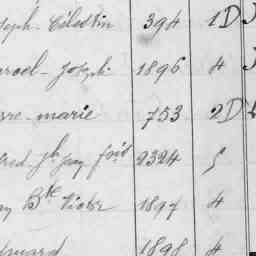 seph - Célestin 394 1D
arcel - Joseph 1896 4
rre - marie 753 2D
red Jh 2324
Bte Victor 1897 4
douard 1898 4